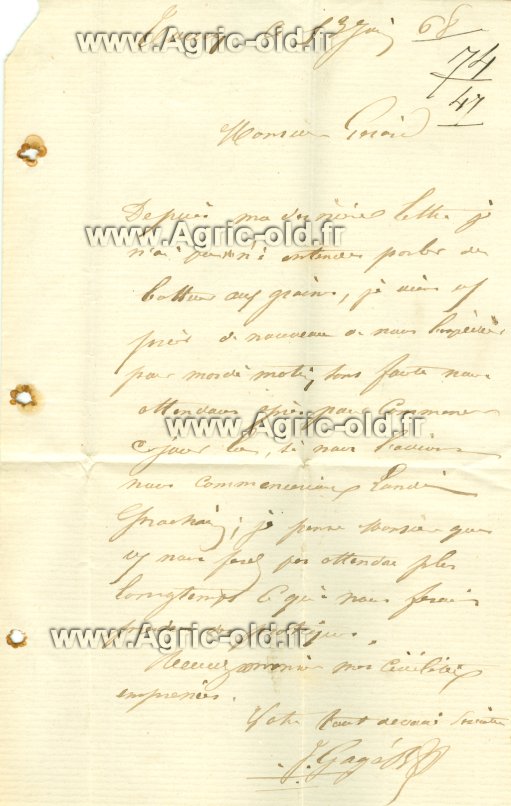 le 5 Juin 68
www.Agric-old.fr
74
47
Monsieur Gérard
Depuis ma dernière lettre je
www.Agric-old.fr
n'ai entendu parler de
batteur aux grains, je viens
de nouveau de nous l'expédier
pour mardi matin, sans faute nous
attendons après pour Commencer
www.Agric-old.fr
ce jour là, si nous l'avions
nous commencerions Lundi
prochain; je pense Monsieur que
nous ferez pas attendre plus
longtemps Ce qui nous ferais
www.Agric-old.fr
Recevez monsieur mes Civilités
empressées.
Votre tout dévoué Serviteur
J. Gagé